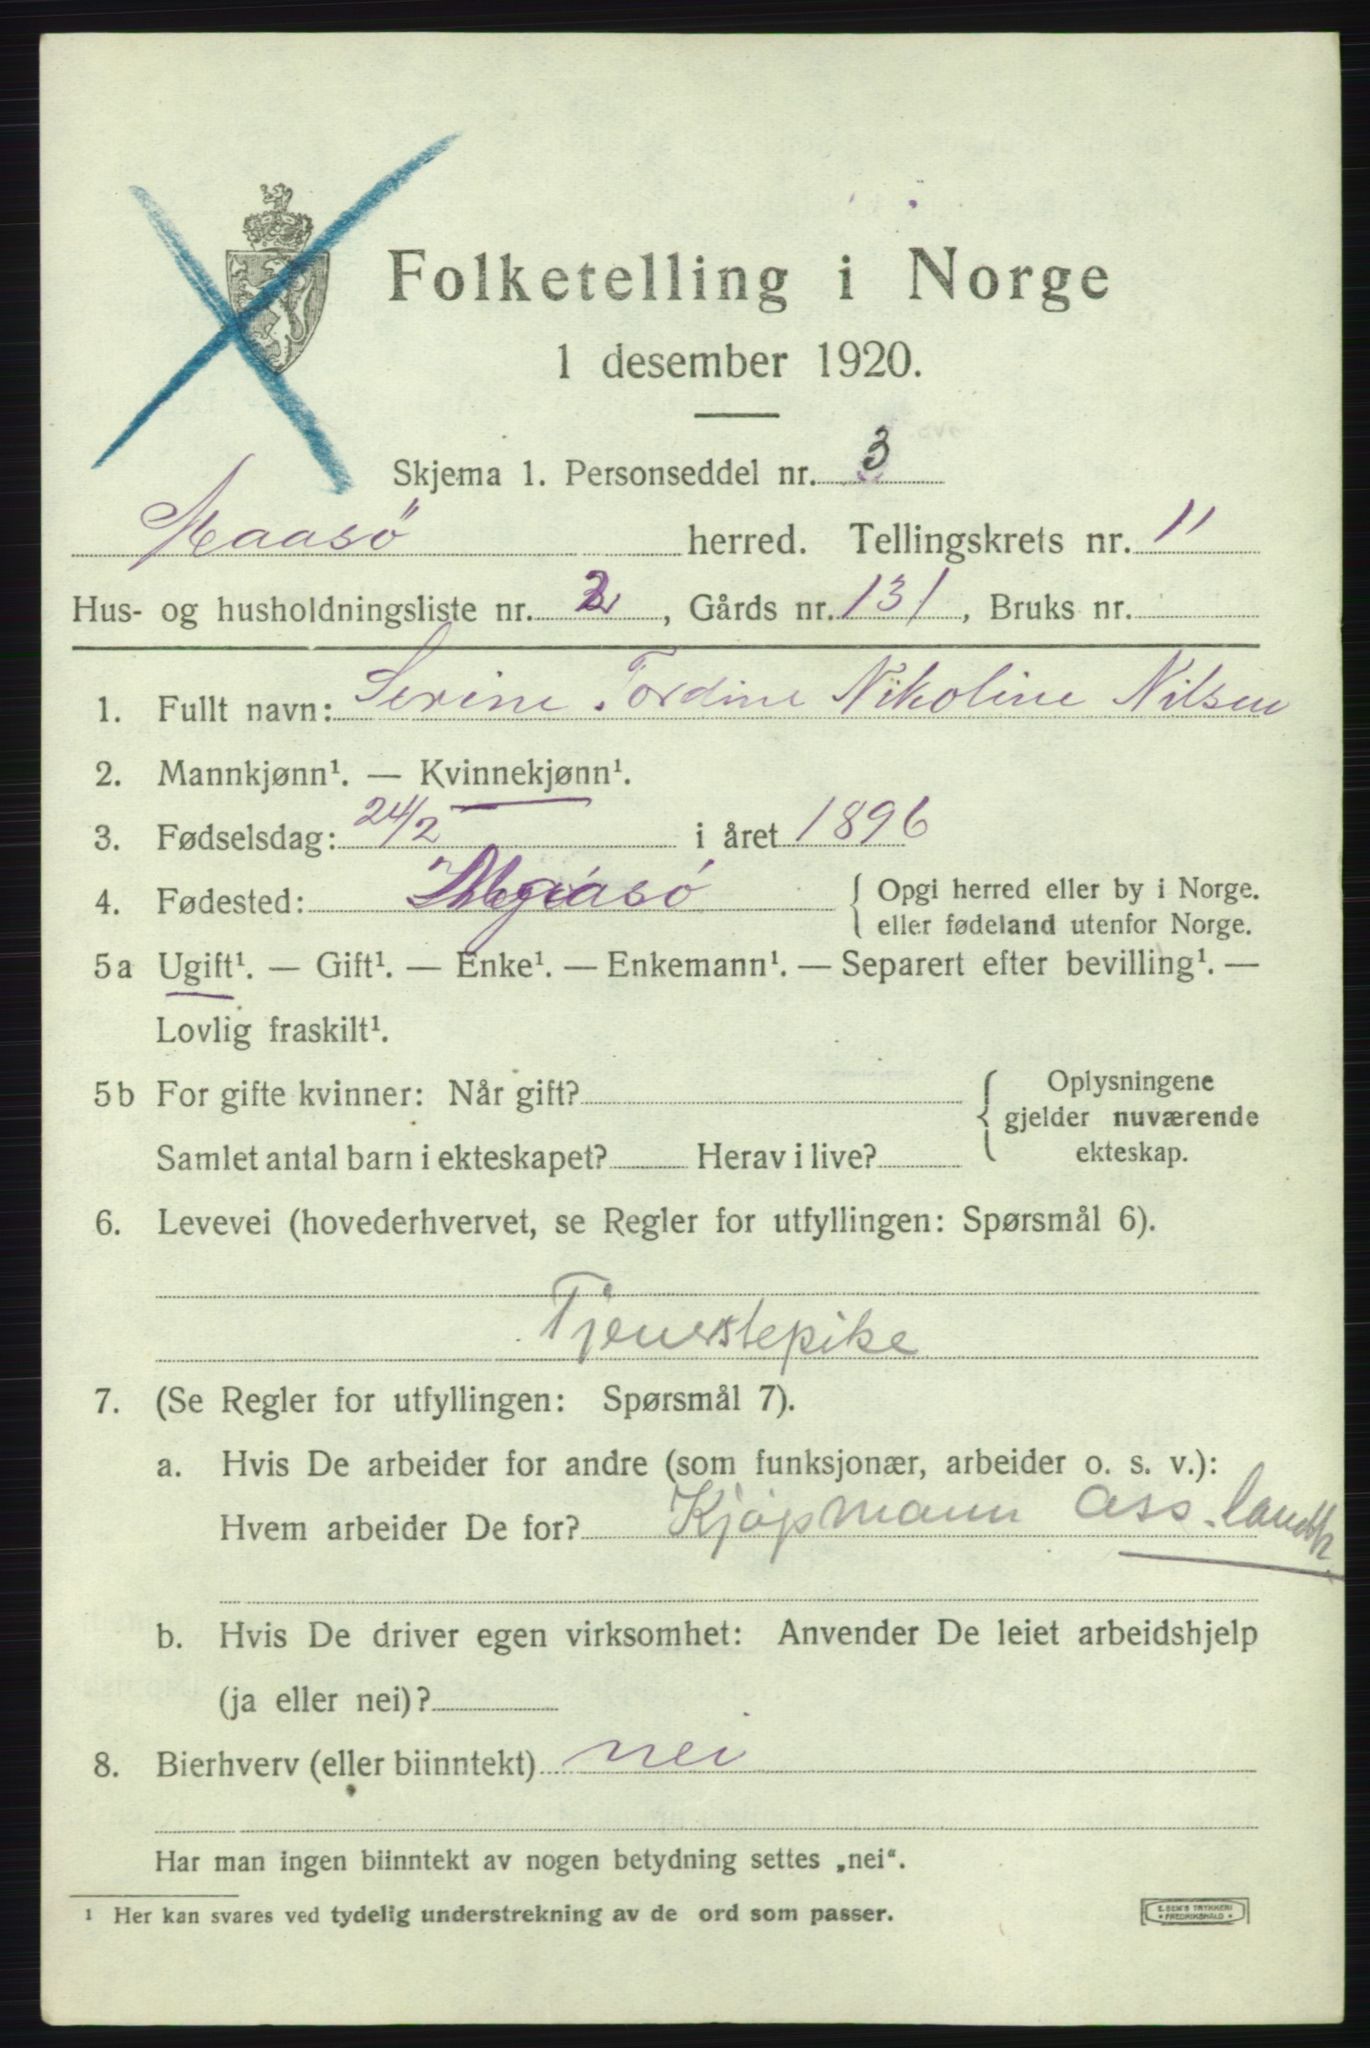 Folketelling i Norge
1 desember 1920.
Skjema 1. Personseddel nr. 3
Maasö herred. Tellingskrets nr. 11
Hus- og husholdningsliste nr. 2, Gårds nr. 131, Bruks nr.
1. Fullt navn: Serine Tordine Nikoline Nilsen
2. Mannkjønn¹. — Kvinnekjønn¹.
3. Fødselsdag: 24/2 i året 1896
4. Fødested: Maasö { Opgi herred eller by i Norge.
eller fødeland utenfor Norge.
5a Ugift¹. — Gift¹. — Enke¹. — Enkemann¹. — Separert efter bevilling¹. —
Lovlig fraskilt¹.
5b For gifte kvinner: Når gift? { Oplysningene
gjelder nuværende
Samlet antal barn i ekteskapet? Herav i live? ekteskap.
6. Levevei (hovederhvervet, se Regler for utfyllingen: Spørsmål 6).
Tjenestepike
7. (Se Regler for utfyllingen: Spørsmål 7).
a. Hvis De arbeider for andre (som funksjonær, arbeider o. s. v.):
Hvem arbeider De for? Kjöpmann Ass. landh.
b. Hvis De driver egen virksomhet: Anvender De leiet arbeidshjelp
(ja eller nei)?
8. Bierhverv (eller biinntekt) nei
Har man ingen biinntekt av nogen betydning settes „nei“.
¹ Her kan svares ved tydelig understrekning av de ord som passer.
E. SEM'S TRYKKERI
• FREDRIKSHALD •